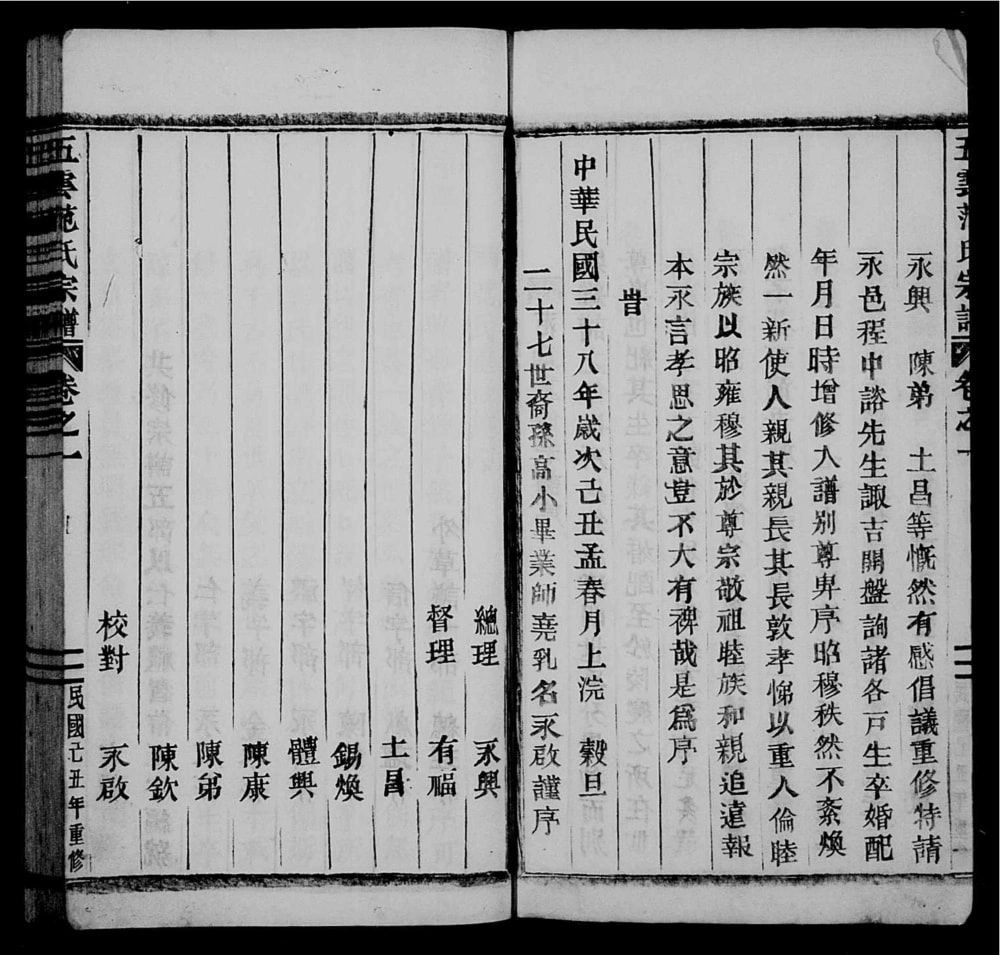 五雲范氏宗譜 卷之一
永興　陳弟　土昌等慨然有感倡議重修特請
永邑程中諮先生諏吉開盤詢諸各戸生卒婚配
年月日時增修入譜別尊卑序昭穆秩然不紊煥
然一新使人親其親長其長敦孝悌以重人倫睦
宗族以昭雍穆其於尊宗敬祖睦族和親追遠報
本永言孝思之意豈不大有裨哉是為序
旹
中華民國三十八年歲次己丑孟春月上浣　穀旦
二十七世裔孫高小畢業師堯乳名永啟謹序
總理　永興
督理　有福
土昌
錫煥
體興
陳康
陳弟
陳欽
校對　永啟
五雲范氏宗譜 卷之一 民國己丑年重修